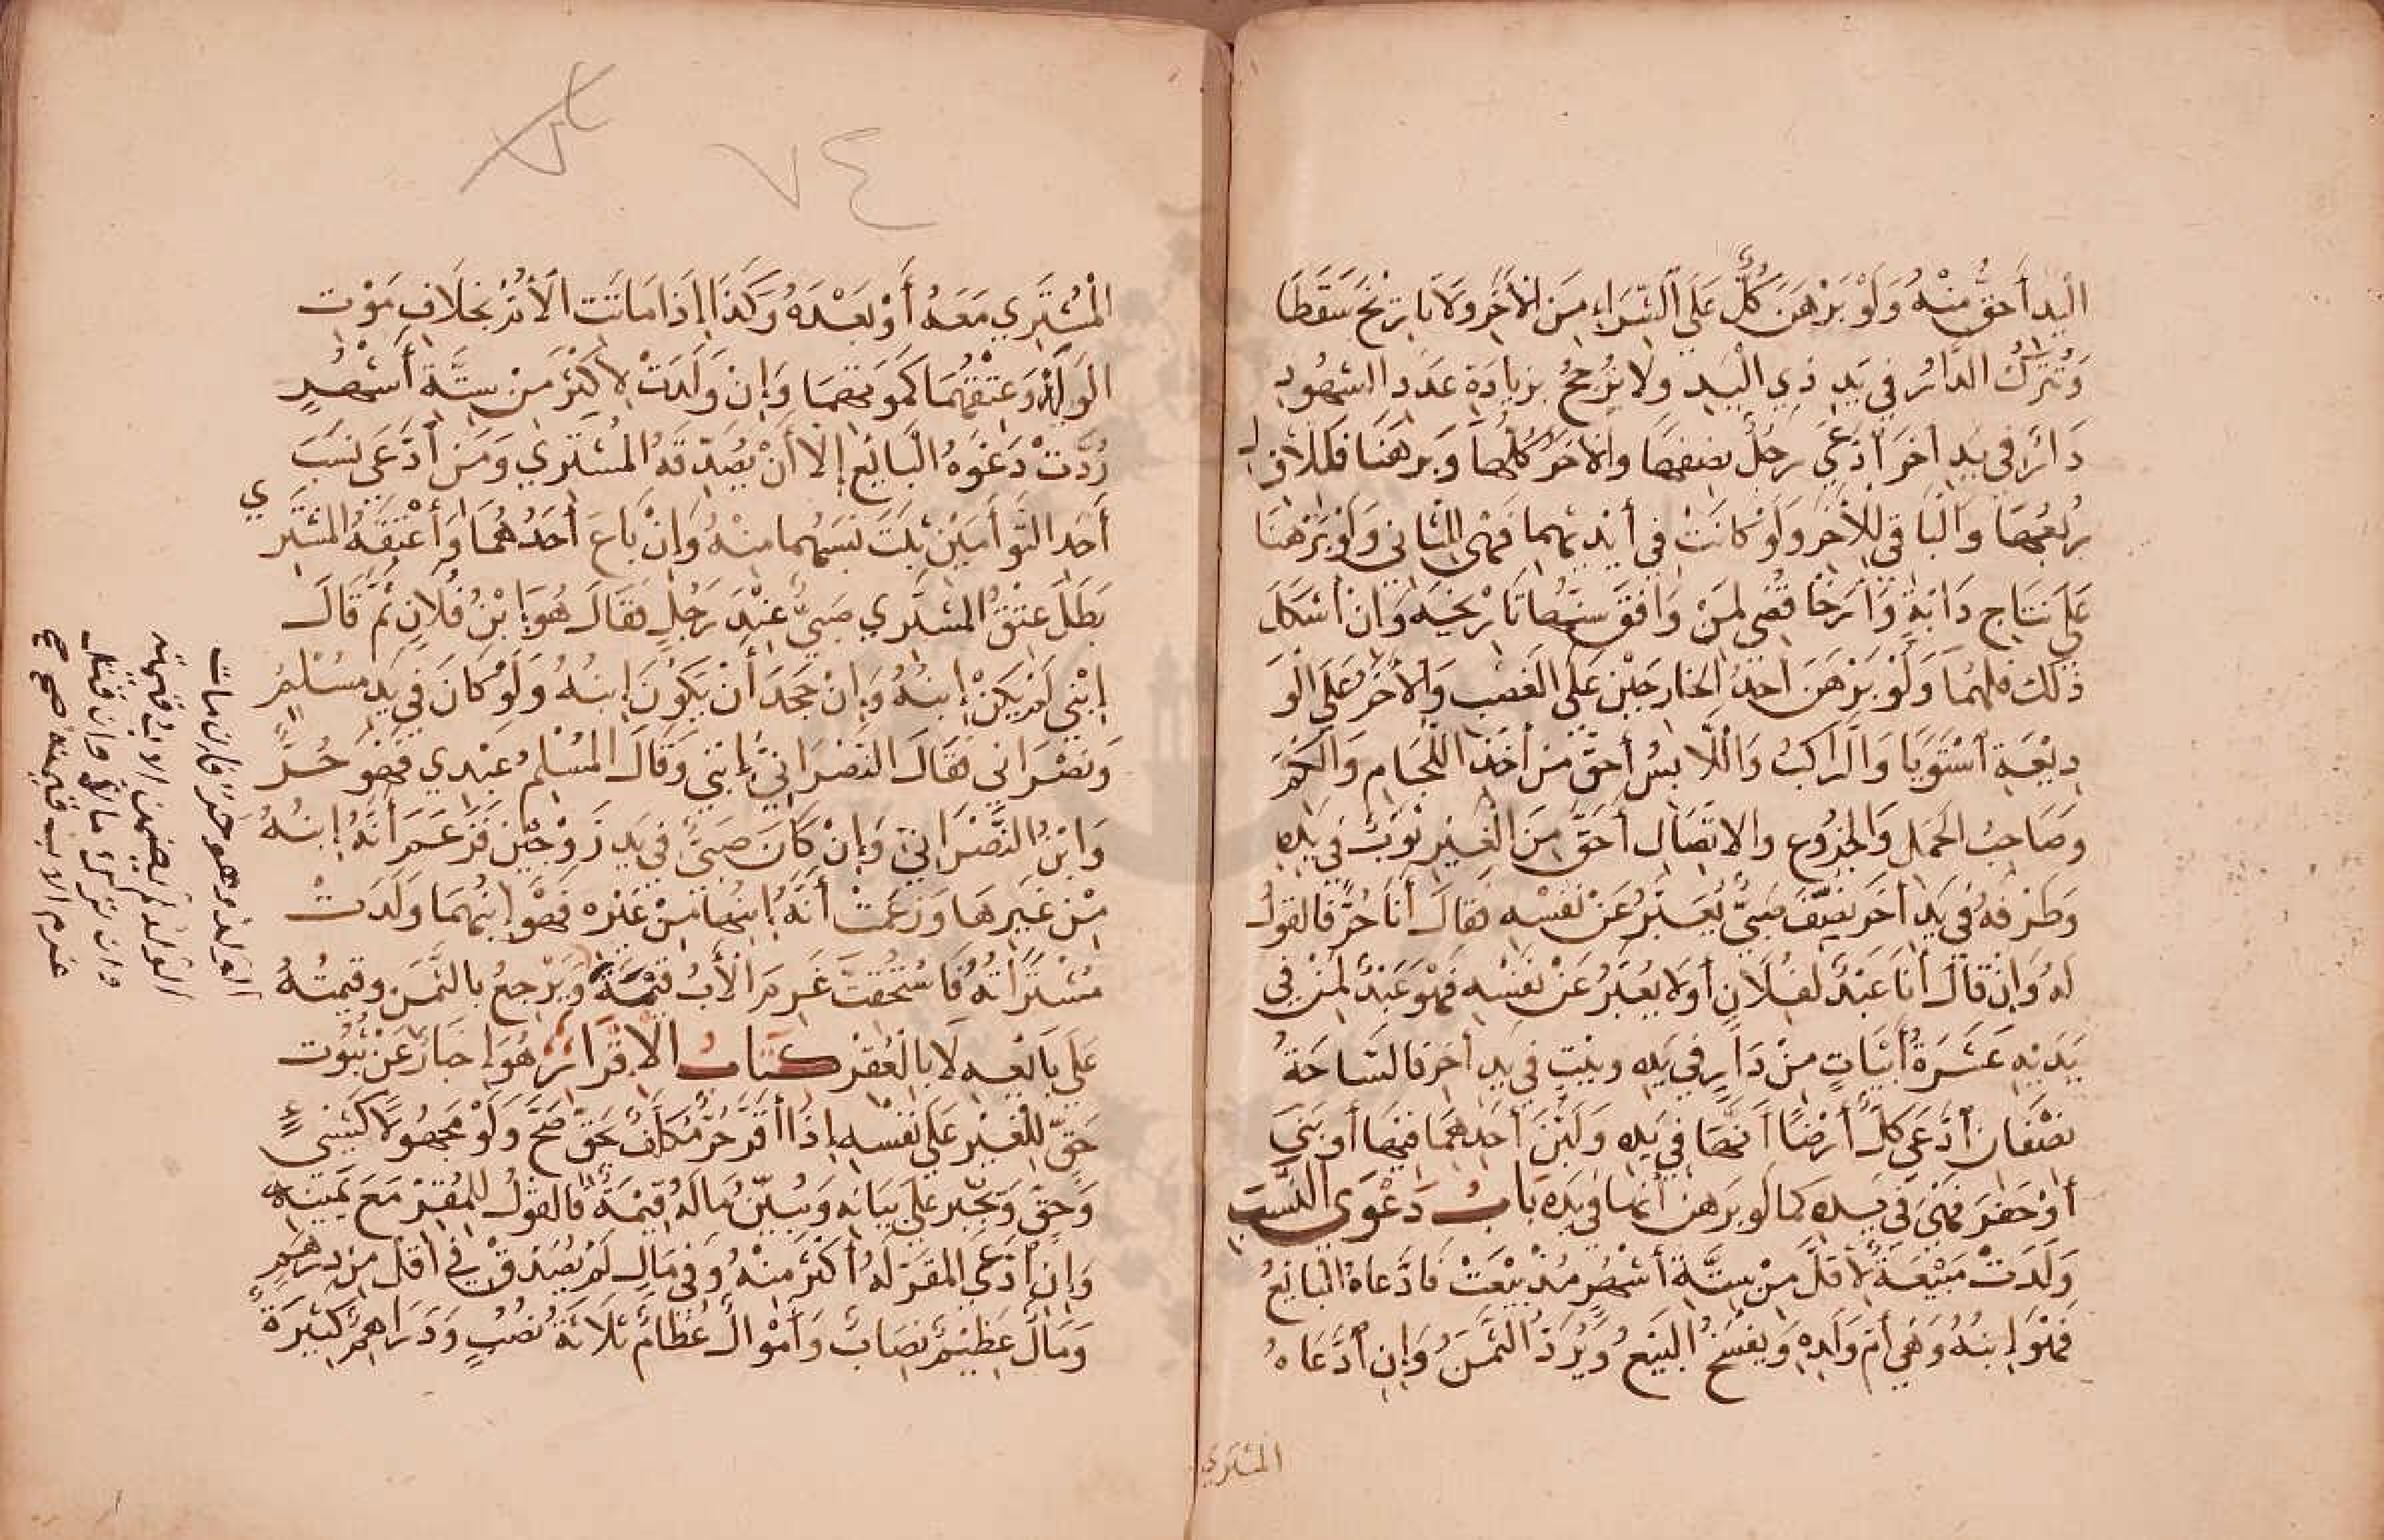 اليد أحق منه ولو برهن كل على الشراء من الآخر ولا تاريخ سقطا
وتترك الدار في يد ذي اليد ولا يرجح بزيادة عدد الشهود
دار في يد آخر ادعى رجل نصفها والآخر كلها وبرهنا فللأول
ربعها والباقي للآخر ولو كانت في أيديهما فهي للثاني ولو برهنا
على نتاج دابة وأرخا قضي لمن وافق سنها تاريخه وإن أشكل
ذلك فلهما ولو برهن أحد الخارجين على الغصب والآخر على الو
ديعة استويا والراكب واللابس أحق من أخذ اللجام والكم
وصاحب الحمل والجذوع والاتصال أحق من الغير ثوب في يده
وطرفه في يد آخر نصف صبي يعبر عن نفسه فقال أنا حر فالقول
له وإن قال أنا عبد لفلان أو لا يعبر عن نفسه فهو عبد لمن في
يديه عشرة أبيات من دار في يده وبيت في يد آخر فالساحة
نصفان ادعى كل أرضا أنها في يده ولبن أحدهما فيها أو بنى
أو حفر فهي في يده كما لو برهن أنها في يده باب دعوى النسب
ولدت مبيعة لأقل من ستة أشهر مذ بيعت فادعاه البائع
فهو ابنه وهي أم ولده ويفسخ البيع ويرد الثمن وإن ادعاه
المشتري
٧٤
المشتري معه أو بعده وكذا إذا ماتت الأم بخلاف موت
الولد وعتقهما كموتهما وإن ولدت لأكثر من ستة أشهر
ردت دعوة البائع إلا أن يصدقه المشتري ومن ادعى نسب
أحد التوأمين ثبت نسبهما منه وإن باع أحدهما وأعتقه المشتري
بطل عتق المشتري صبي عند رجل فقال هو ابن فلان ثم قال
إبني لم يكن إبنه وإن جحد أن يكون إبنه ولو كان في يد مسلم
ونصراني فقال النصراني إبني وقال المسلم عبدي فهو حر
وابن النصراني وإن كان صبي في يد زوجين فزعم أنه إبنه
من غيرها وزعمت أنه إبنها من غيره فهو إبنهما ولدت
مشتراته فاستحقت غرم الأب قيمة ويرجع بالثمن وقيمته
على بائعه لا بالعقر كتاب الإقرار هو إخبار عن ثبوت
حق للغير على نفسه إذا أقر حر مكلف بحق صح ولو مجهولا كشيء
وحق ويجبر على بيانه ويبين ماله قيمة فالقول للمقر مع يمينه
وإن ادعى المقر له أكثر منه وفي مال لم يصدق في أقل من درهم
ومال عظيم نصاب وأموال عظام ثلاثة نصب ودراهم كثيرة
الولد وهو حر فإن مات
الولد لم يضمن الأب قيمته
وإن ترك مالا وإن قتل
غرم الأب قيمته صح